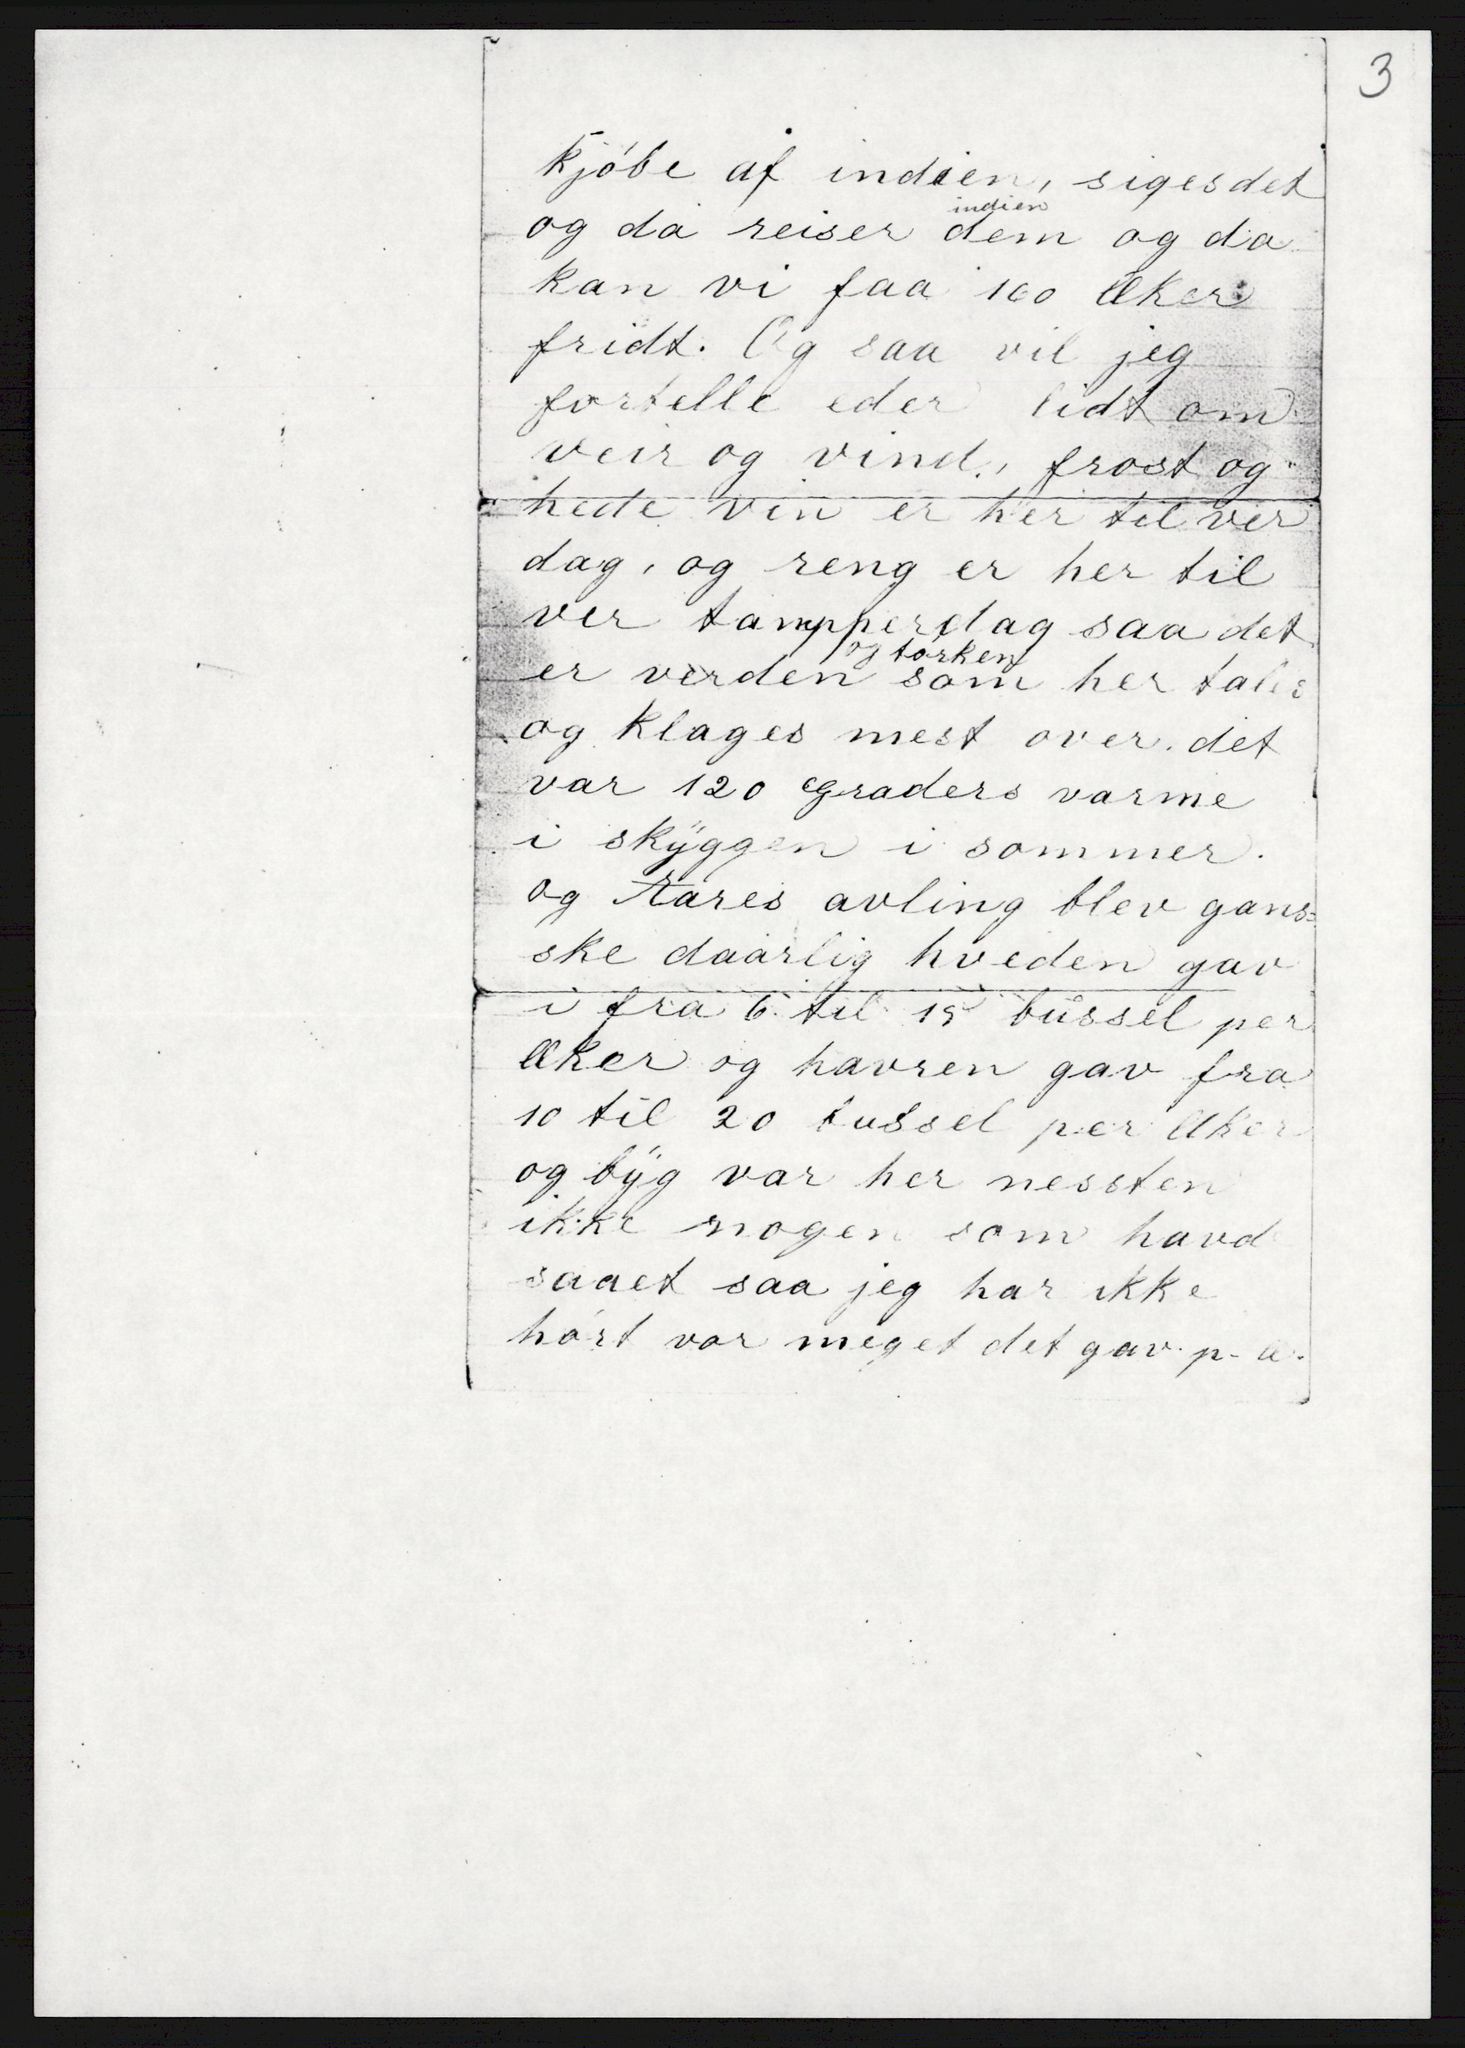 3
kjöbe af indien, siges det
og da reiser dem og da
indien
kan vi faa 160 Æker
fridt. Og saa vil jeg
fortelle eder lidt om
veir og vind, frost og
hede vin er her til ver
dag, og reng er her til
ver tampperdag saa det
og törken
er verden som her tales
og klages mest over. det
var 120 Graders varme
i skÿggen i sommer.
og Aares avling blev gans=
ske daarlig hveden gav
i fra 6 til 15 bussel per
Æker og havren gav fra
10 til 20 bussel per Æker
og bÿg var her nessten
ikke nogen som havd
saaet saa jeg har ikke
hört vor meget det gav. p. æ.